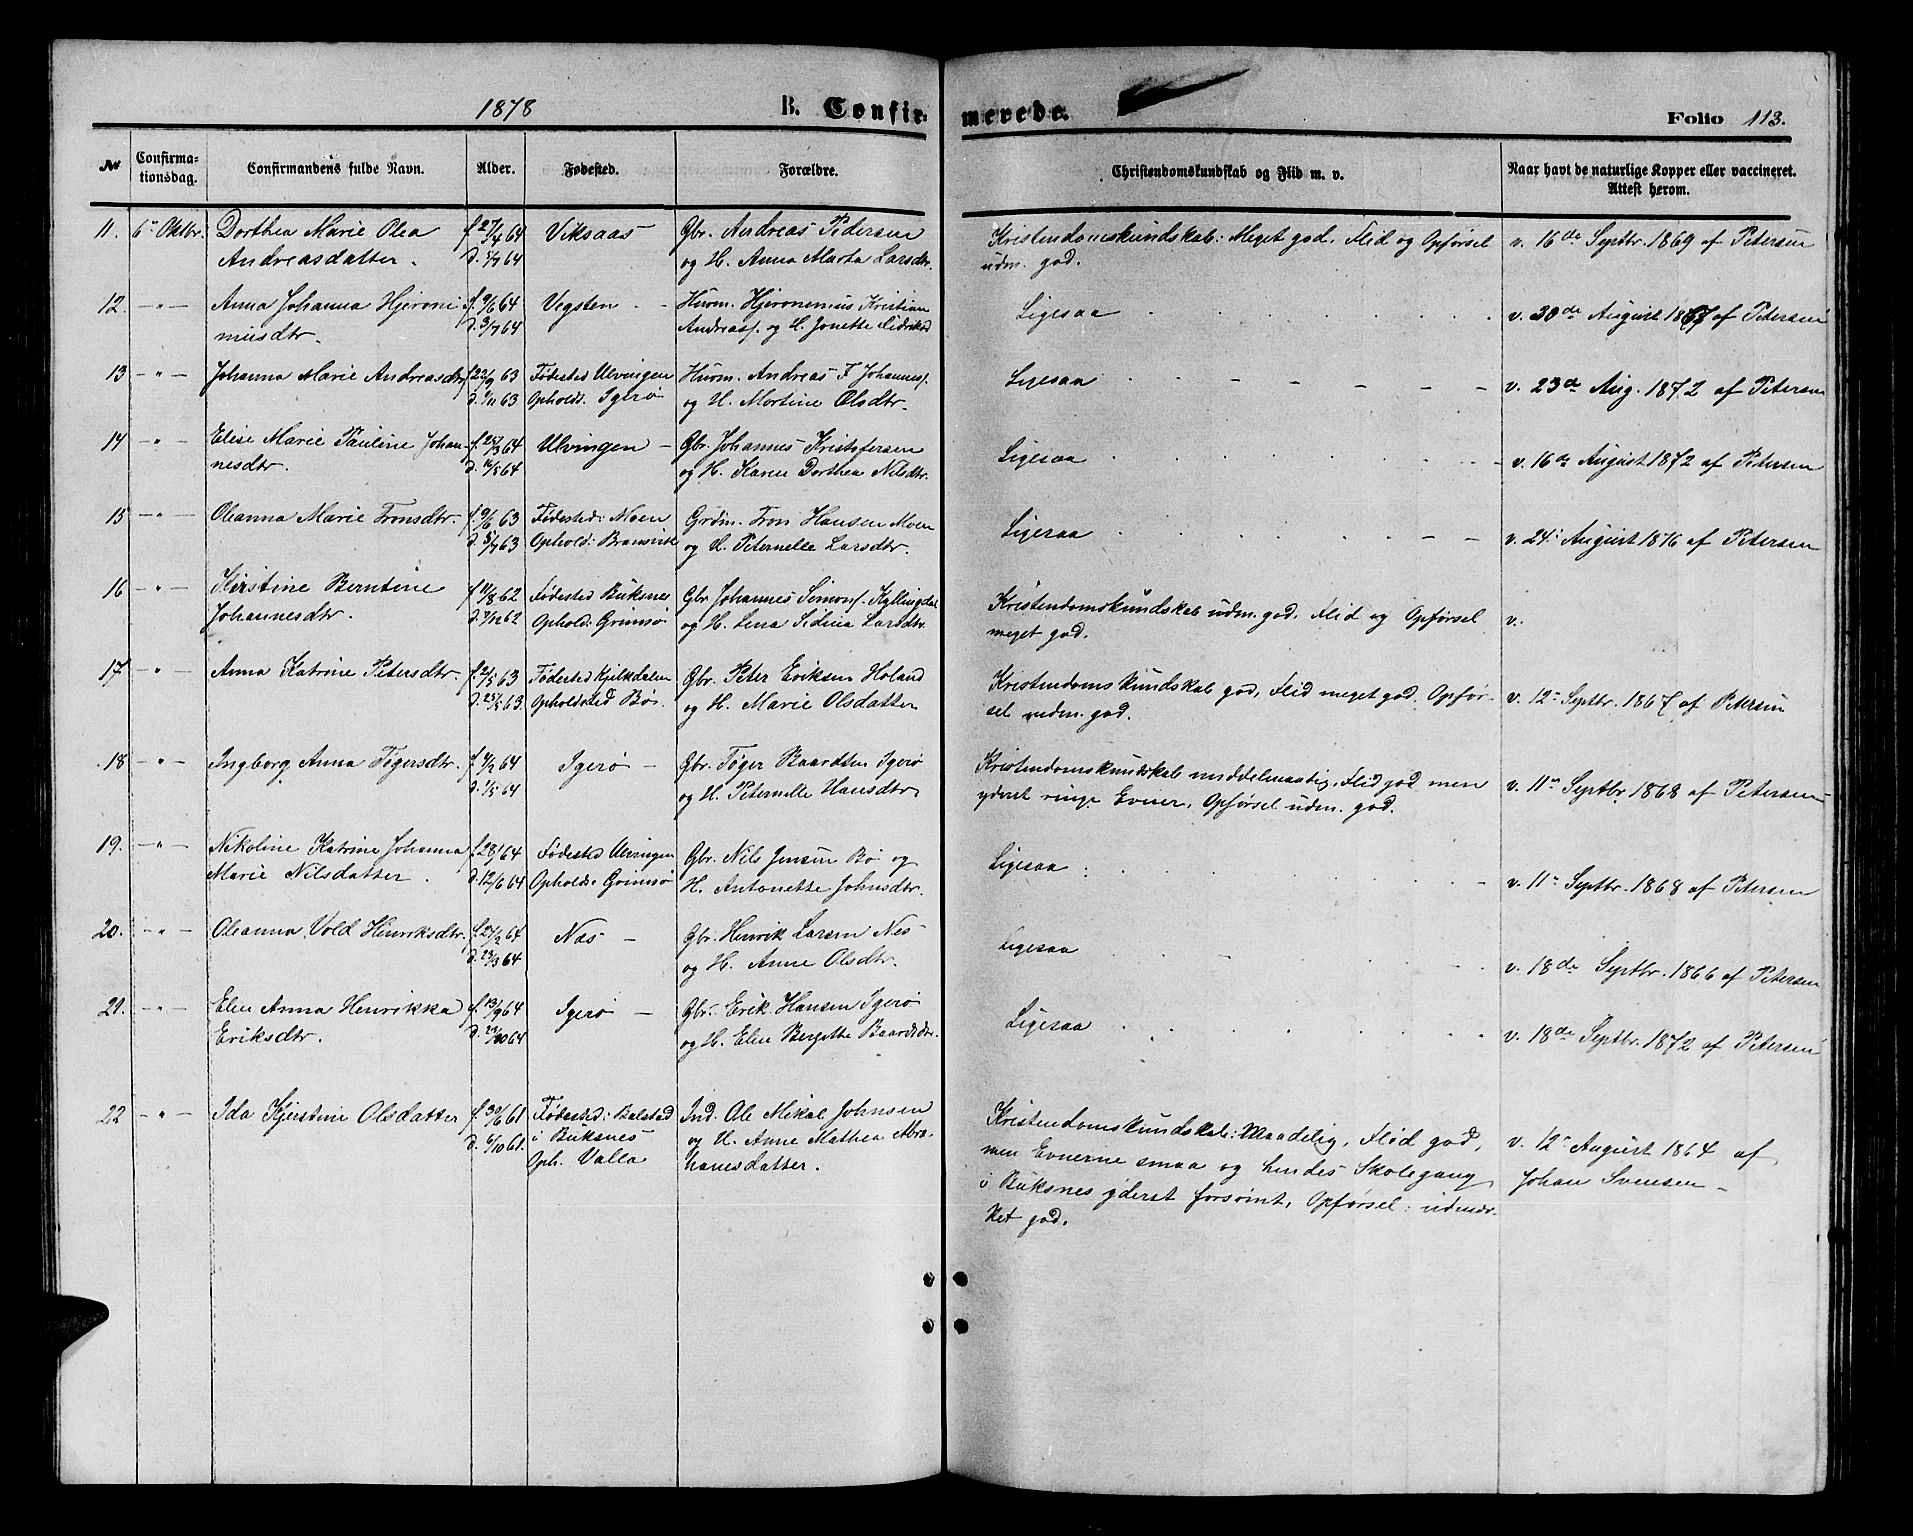 1878 B. Confirmerede. Folio 113.
No Confirmationsdag. Confirmandens fulde Navn. Alder. Fødested. Forældre. Christendomskundskab og Flid m. v. Naar havt de naturlige Kopper eller vaccineret. Attest herom.
11. 6te Oktbr. Dorthea Marie Olea f. 27/4 64 Viksaas Gbr. Andreas Pedersen Kristendomskundskab: Meget god. Flid og Opførsel v. 16de Septbr. 1869 af Petersen
Andreasdatter. d. 5/7 64 og H. Anna Marta Larsdtr. udm. god.
12. - " - Anna Johanna Hjeroni- f. 9/6 64 Vegsten - Husm. Hjeronemus Kristian Ligesaa v. 30de August 1867 af Petersen
musdtr. d. 3/7 64 Andreass. og H. Jonette
13 - " - Johanna Marie Andreasdtr f. 22/9 63 Fødested Ulvingen Husm. Andreas F. Johanness. Ligesaa v. 23de Aug. 1872 af Petersen
d. 1/11 63 Opholdt. Igerø og H. Mortine Olsdtr.
14 - " - Elise Marie Pauline Johan- f. 25/3 64 Ulvingen - Gbr. Johannes Kristofersen Ligesaa v. 16de August 1872 af Petersen
nesdtr. 64 og H. Karen Dorthea Nilsdtr.
15 - " - Oleanna Marie Tronsdtr. f. 9/6 63 Fødested: Moen Grdm. Tron Hansen Moen Ligesaa v. 24de August 1876 af Petersen
d. 5/7 63 Ophold: og H. Peternelle Larsdtr.
16 - " - Kirstine Berntine f. 11/8 62 Fødested Buksnes Gbr Johannes Simons. Kyllingdal Kristendomskundskab udm. god. Flid og Opførsel v.
Johannesdtr. d. 7/12 62 Ophold: Grimsø og H. Lena Larsdtr. meget god.
17 - " - Anna Katrine Petersdtr. 63 Fødested Kjelkdalen Gbr. Peter Eriksen Holand Kristendomskundskab god, Flid meget god. Opfør- v. 12te Septbr. 1867 af Petersen
d. 25/5 63. Opholdsted Bø. og H. Marie Olsdatter sel udm. god.
18 - " - Ingborg Anna Tøgersdtr. 64 Igerø - Gbr. Tøger Baardsen Igerø Kristendomskundskab middelmaadig. Flid god men v. 11te Septbr. 1868 af Petersen
d. 1/5 64 og H. Peternelle Hansdtr. yderst ringe Evner, Opførsel udm. god.
19. - " - Nikoline Katrine Johanna 64 Fødested Ulvingen Gbr. Nils Jensen Bø og Ligesaa v. 11te Septbr. 1868 af Petersen
Marie Nilsdatter. d. 12/6 64 Ophold: Grimsø H. Antonette Johnsdtr.
20. - " - Oleanna Vold Henriksdtr. f. 21/2 64 Nes - Gbr. Henrik Larsen Nes Ligesaa v. 18de Septbr. 1866 af Petersen
64 og H. Anne Olsdtr.
21. - " - Elen Anna Henrikka f. 13/9 64 Igerø - Gbr. Erik Hansen Igerø Ligesaa v. 18de Septbr. 1872 af Petersen
Eriksdtr. d. 23/10 64 og H. Elen Bergitte Baardsdtr.
22 - " - Ida Kjerstine Olsdatter f. 30/6 61 Fødested: Balstad Ind. Ole Mikal Johnsen Kristendomskundskab: Maadelig, Flid god, v. 12te August 1864 af
d. 6/10 61. i Buksnes og H. Anne Mathea Abra- men Evnerne smaa og hendes Skolegang Johan Svensen -
Oph. Valla hamsdatter. i Buksnes yderst forsømt, Opførsel: udmær-
ket god.